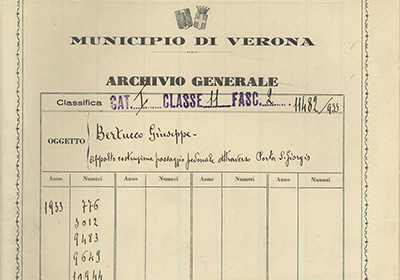 MUNICIPIO DI VERONA
ARCHIVIO GENERALE
Classifica CAT. I CLASSE 11 FASC. 2 - 11482/933
OGGETTO Bertucco Giuseppe -
appalto costruzione passaggio pedonale attraverso Porta S. Giorgio
Anno Numeri Anno Numeri Anno Numeri Anno Numeri
1933 776
3012
9483
9649
10944